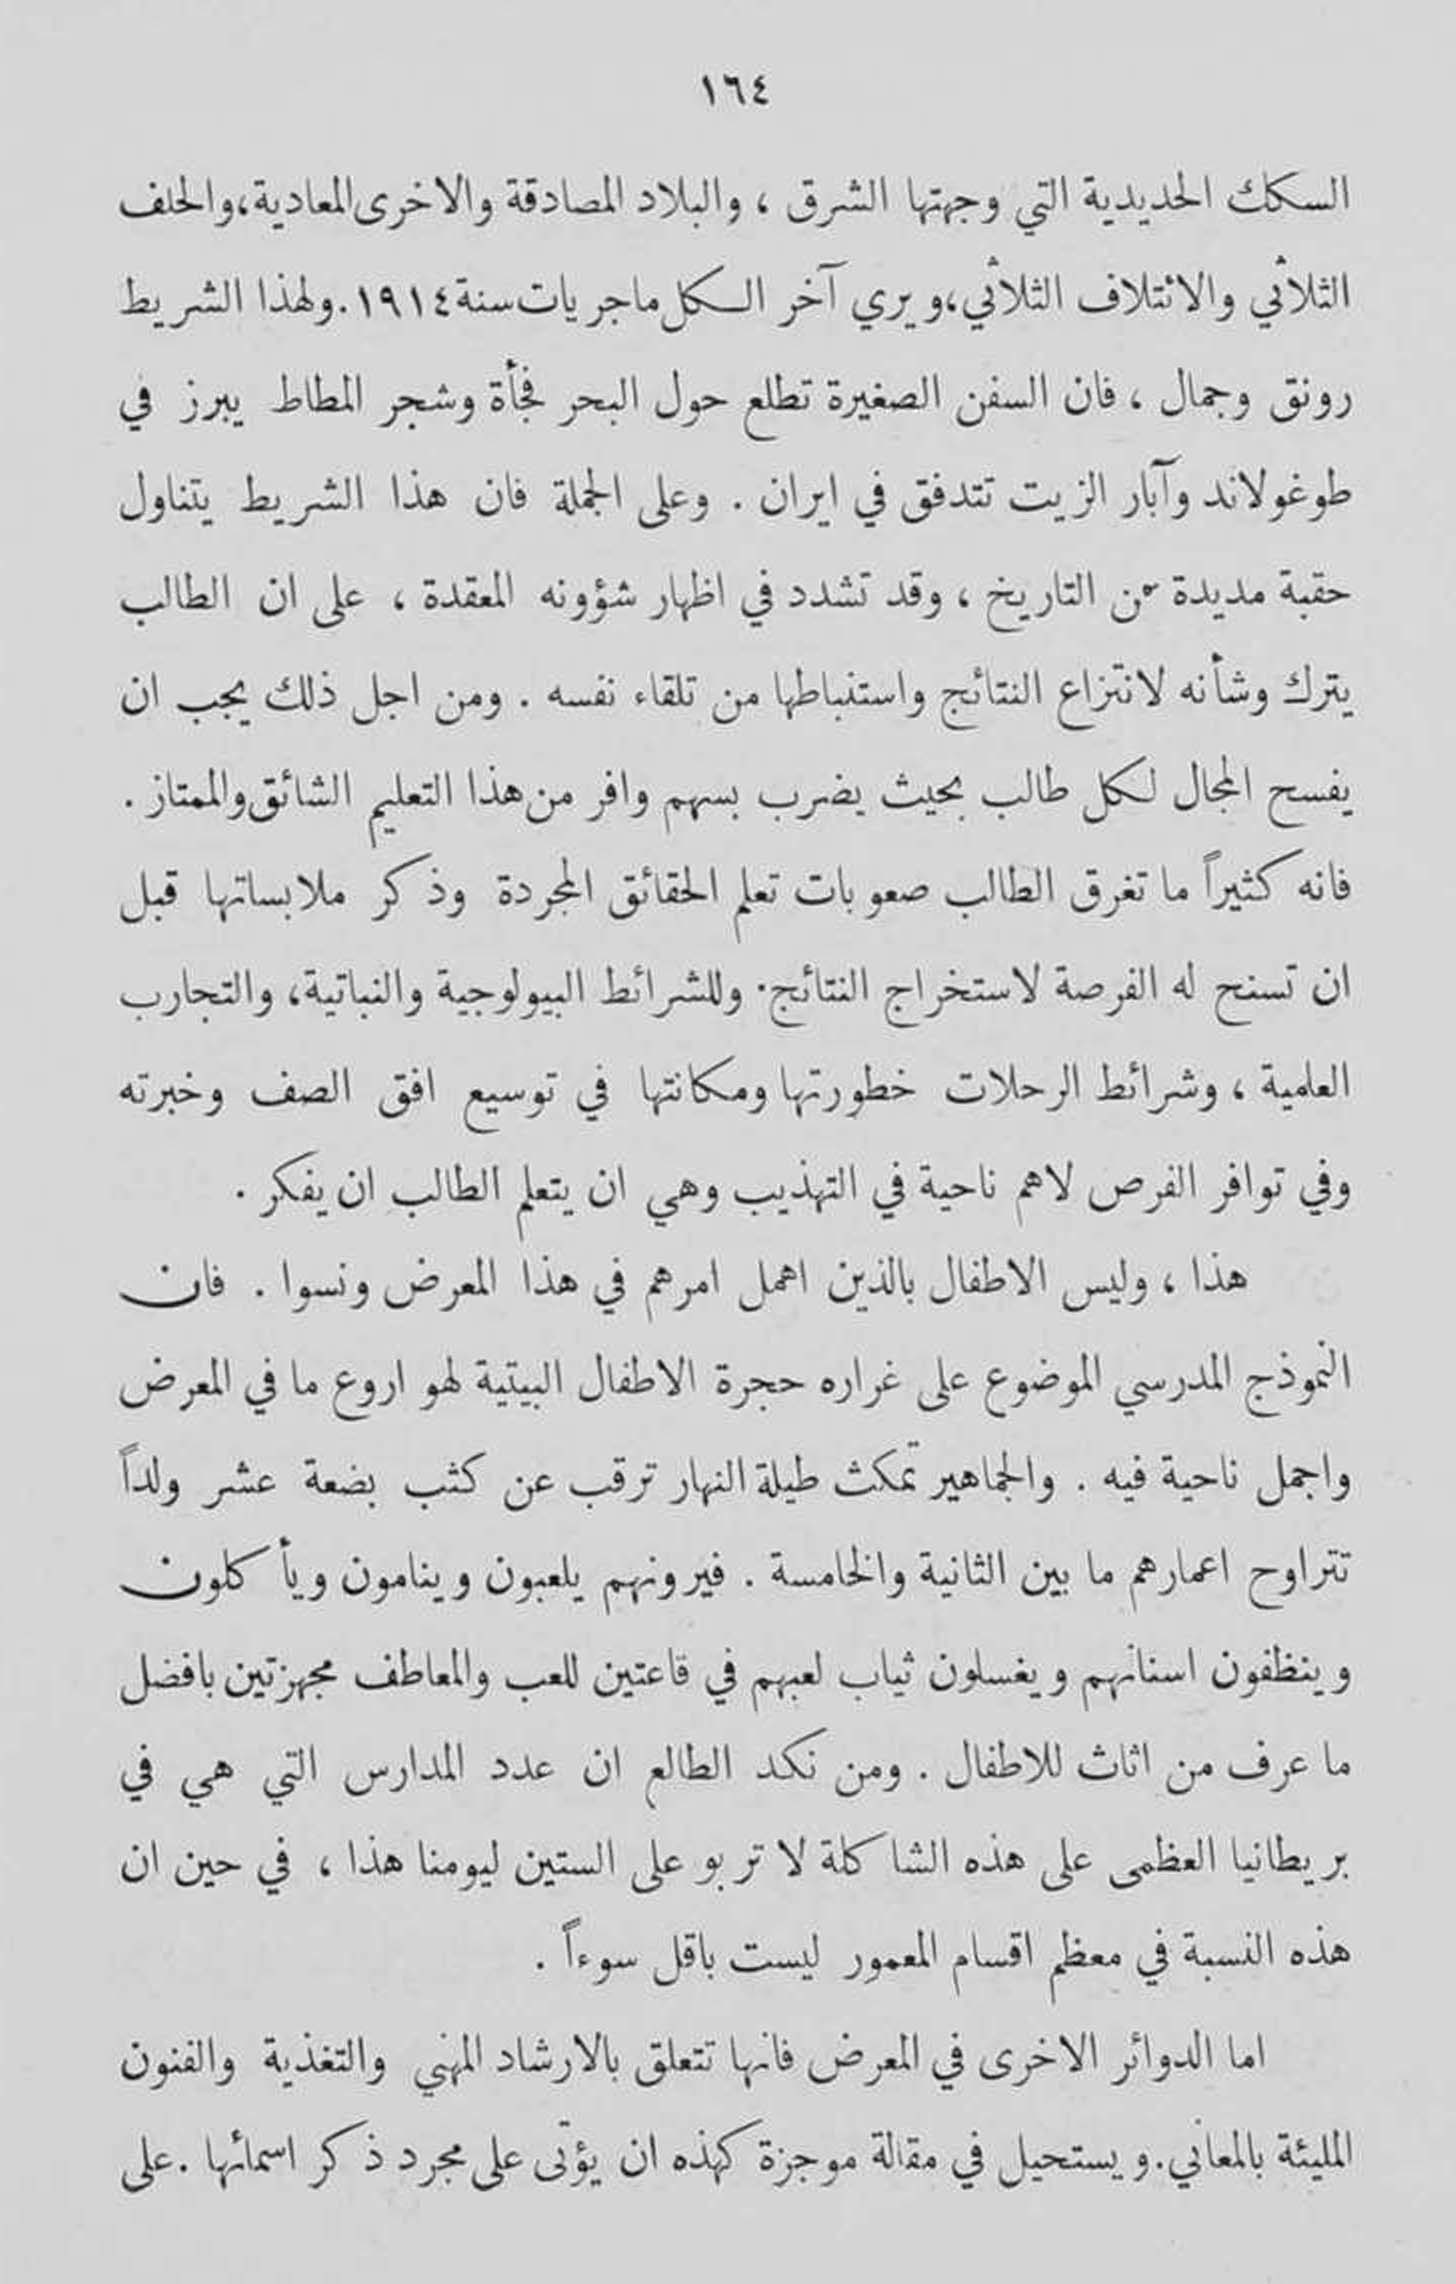 ١٦٤
السكك الحديدية التي وجهتها الشرق ، والبلاد المصادقة والاخرى المعادية، والحلف
الثلاثي والائتلاف الثلاثي، ويري آخر الكل ماجريات سنة ١٩١٤. ولهذا الشريط
رونق وجمال ، فان السفن الصغيرة تطلع حول البحر فجأة وشجر المطاط يبرز في
طوغولاند وآبار الزيت تتدفق في ايران . وعلى الجملة فان هذا الشريط يتناول
حقبة مديدة من التاريخ ، وقد تشدد في اظهار شؤونه المعقدة ، على ان الطالب
يترك وشأنه لانتزاع النتائج واستنباطها من تلقاء نفسه . ومن اجل ذلك يجب ان
يفسح المجال لكل طالب بحيث يضرب بسهم وافر من هذا التعليم الشائق والممتاز .
فانه كثيراً ما تغرق الطالب صعوبات تعلم الحقائق المجردة وذكر ملابساتها قبل
ان تسنح له الفرصة لاستخراج النتائج. وللشرائط البيولوجية والنباتية، والتجارب
العامية ، وشرائط الرحلات خطورتها ومكانتها في توسيع افق الصف وخبرته
وفي توافر الفرص لاهم ناحية في التهذيب وهي ان يتعلم الطالب ان يفكر .
هذا ، وليس الاطفال بالذين اهمل امرهم في هذا المعرض ونسوا . فان
النموذج المدرسي الموضوع على غراره حجرة الاطفال البيتية لهو اروع ما في المعرض
واجمل ناحية فيه . والجماهير تمكث طيلة النهار ترقب عن كثب بضعة عشر ولداً
تتراوح اعمارهم ما بين الثانية والخامسة . فيرونهم يلعبون وينامون ويأكلون
وينظفون اسنانهم ويغسلون ثياب لعبهم في قاعتين للعب والمعاطف مجهزتين بافضل
ما عرف من اثاث للاطفال . ومن نكد الطالع ان عدد المدارس التي هي في
بريطانيا العظمى على هذه الشاكلة لا تربو على الستين ليومنا هذا ، في حين ان
هذه النسبة في معظم اقسام المعمور ليست باقل سوءاً .
اما الدوائر الاخرى في المعرض فانها تتعلق بالارشاد المهني والتغذية والفنون
المليئة بالمعاني. ويستحيل في مقالة موجزة كهذه ان يؤتى على مجرد ذكر اسمائها . على